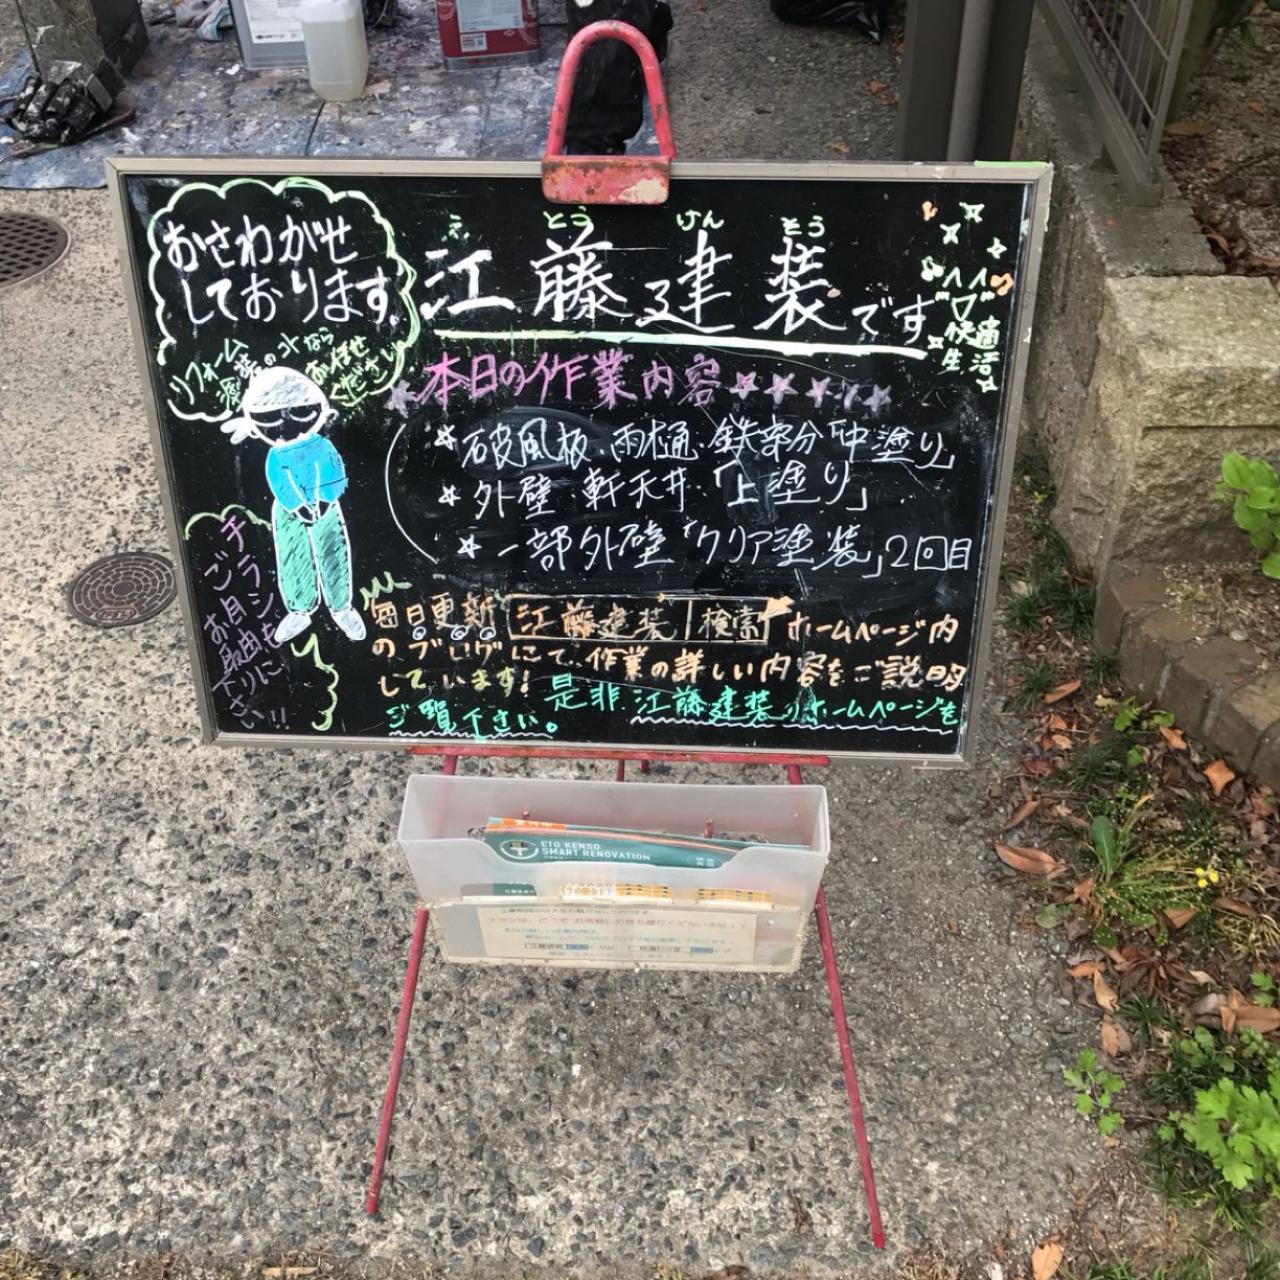 おさわがせ
しております。
えとうけんそう
江藤建装です
快適
生活
リフォーム
塗装のコトなら
お任せ
ください
本日の作業内容
破風板・雨樋・鉄部分「中塗り」
外壁・軒天井・「上塗り」
一部外壁「クリア塗装」2回目
チラシも
ご自由に
お取り
下さい!!
毎日更新 江藤建装 検索 ホームページ内
のブログにて、作業の詳しい内容をご説明
しています! 是非、江藤建装のホームページを
ご覧下さい。
ETO KENSO
SMART RENOVATION